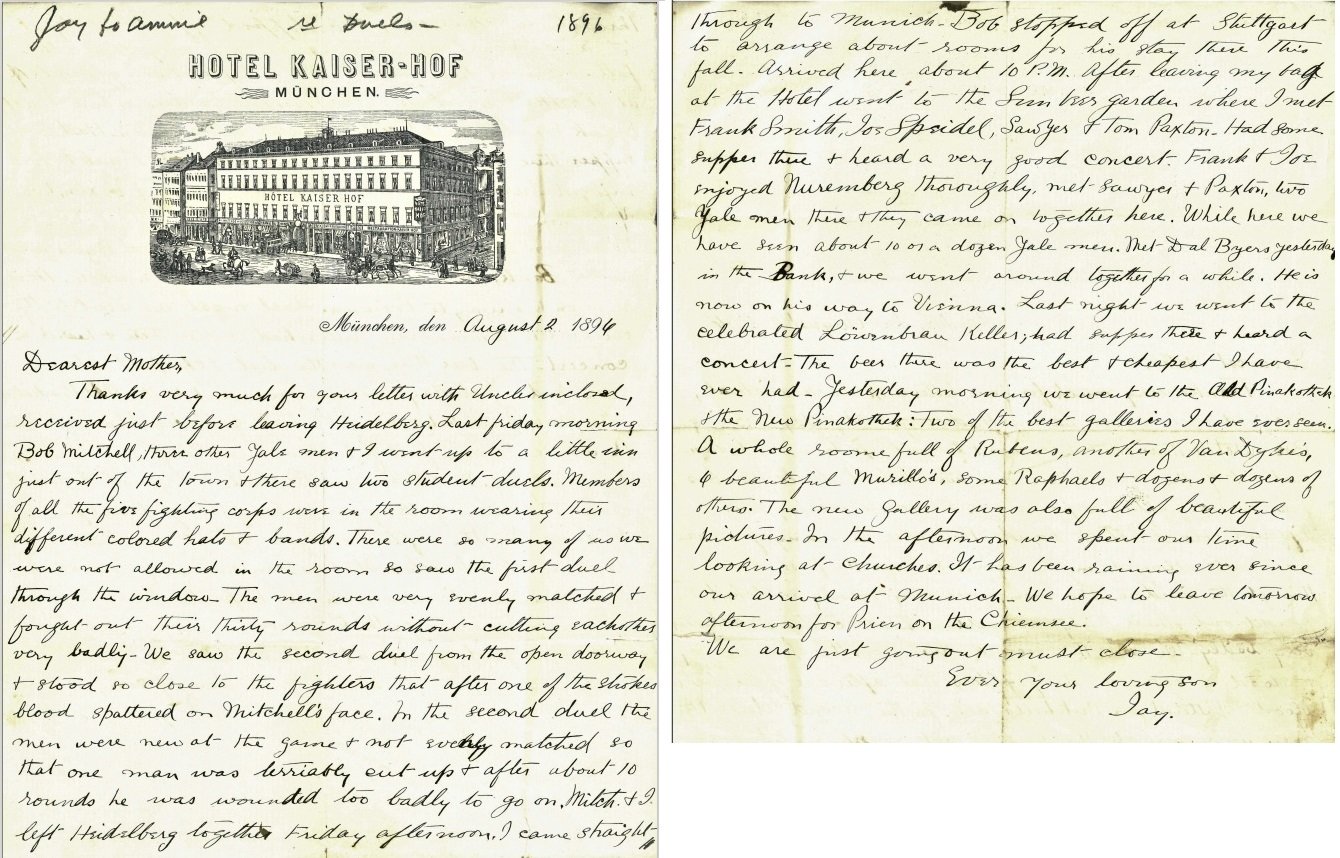 Jay to Annie re Duels - 1896
HOTEL KAISER-HOF
MÜNCHEN.
HÔTEL KAISER HOF
München, den August 2 1896
Dearest Mother,
Thanks very much for your letter with Uncles inclosed,
received just before leaving Heidelberg. Last friday morning
Bob Mitchell, three other Yale men & I went up to a little inn
just out of the town & there saw two student duels. Members
of all the five fighting corps were in the room wearing their
different colored hats & bands. There were so many of us we
were not allowed in the room so saw the first duel
through the window - The men were very evenly matched &
fought out their thirty rounds without cutting eachother
very badly - We saw the second duel from the open doorway
& stood so close to the fighters that after one of the strokes
blood spattered on Mitchell's face. In the second duel the
men were new at the game & not evenly matched so
that one man was terriably cut up & after about 10
rounds he was wounded too badly to go on. Mitch. & I
left Heidelberg together Friday afternoon. I came straight
through to Munich - Bob stopped off at Stuttgart
to arrange about rooms for his stay there this
fall. Arrived here about 10 P.M. After leaving my bag
at the Hotel went to the Sun beer garden where I met
Frank Smith, Joe Speidel, Sawyer & Tom Paxton - Had some
supper there & heard a very good concert. Frank & Joe
enjoyed Nuremberg thoroughly, met Sawyer & Paxton, two
Yale men there & they came on together here. While here we
have seen about 10 or a dozen Yale men. Met Dal Byers yesterday
in the Bank, & we went around together for a while. He is
now on his way to Vienna. Last night we went to the
celebrated Löwenbrau Keller, had supper there & heard a
concert - The beer there was the best & cheapest I have
ever had - Yesterday morning we went to the Old Pinakothek
& the New Pinakothek: Two of the best galleries I have ever seen.
A whole roome full of Rubens, another of Van Dyke's,
6 beautiful Murillo's, some Raphaels & dozens & dozens of
others. The new Gallery was also full of beautiful
pictures - In the afternoon we spent our time
looking at Churches. It has been raining ever since
our arrival at Munich - We hope to leave tomorrow
afternoon for Prien on the Chiemsee.
We are just going out must close -
Ever your loving son
Jay.